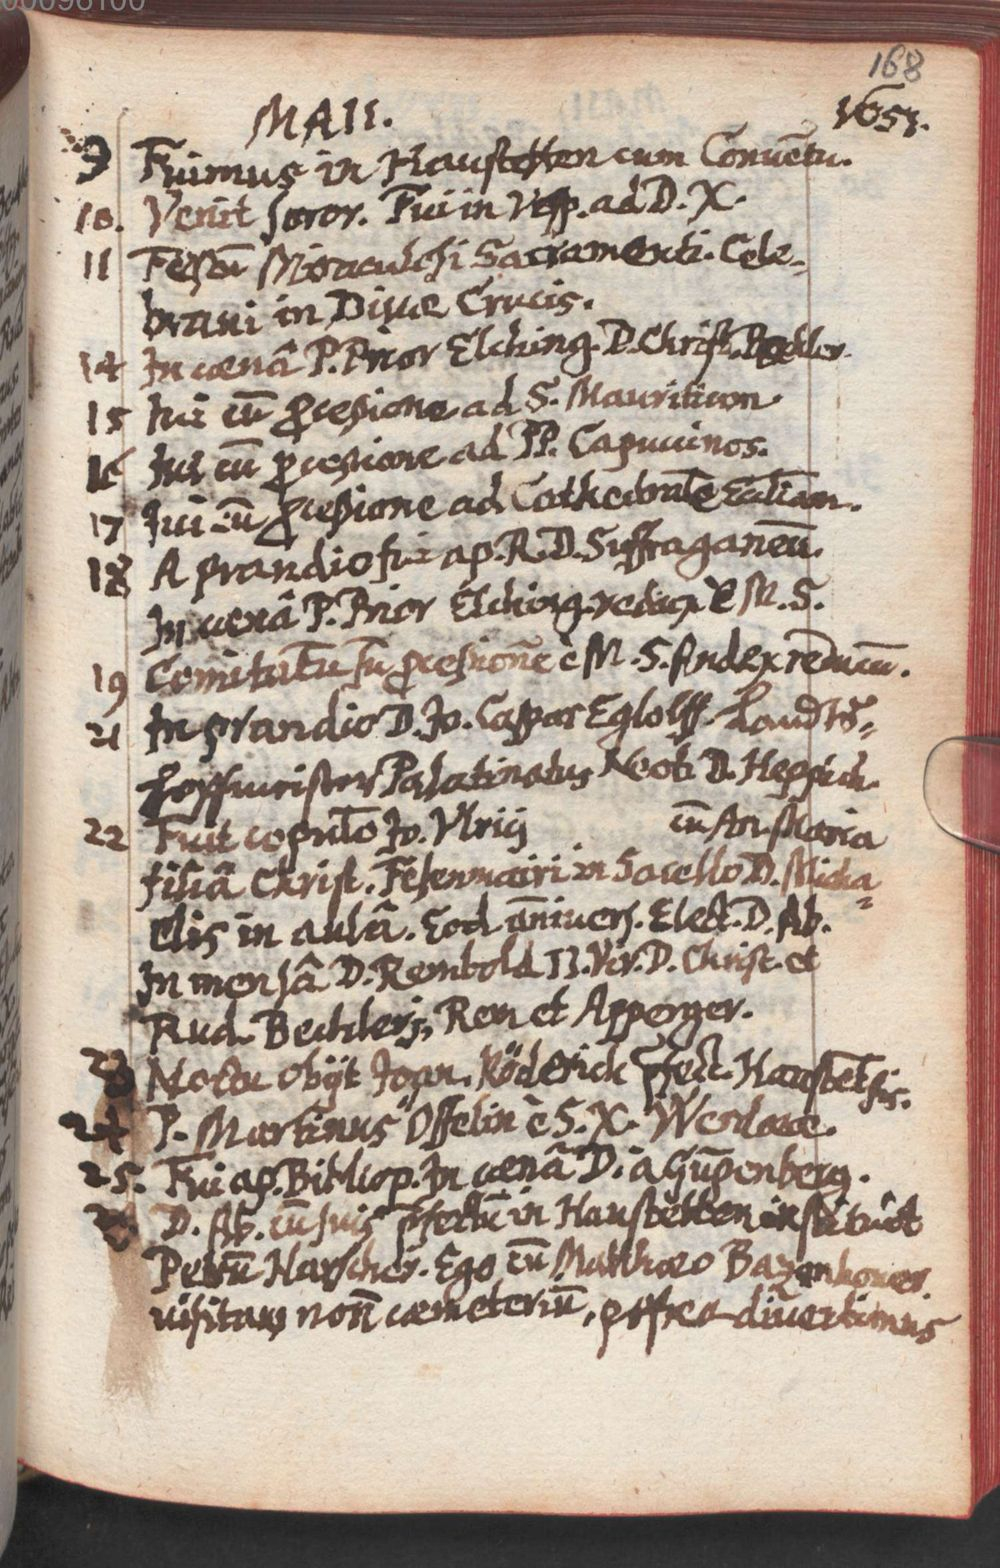 00096100
168
MAII. 1651.
9 Fuimus in Haustetten cum Conuētu.
10. Venit soror. Fui in Viss. ad D. X.
11 Festū Miraculosi Sacramenti. Cele-
braui in Diuae Crucis.
14 In caenâ P. Prior Elching. D. Christ. Bechler.
15 Iui cū ꝓcessione ad S. Mauritium
16 Iui cū ꝓcessione ad PP. Capucinos.
17 Iui cū ꝓcessione ad Cathedralē Eccliam.
18 A prandio fui ap. R. D. Suffraganeū.
In caenâ P. Prior Elching. redux è M. S.
19 Comitatū in ꝓcessione è M. S. Andex redeuntiū.
21 In prandio D. Jo. Caspar Egloff. Landts-
Palatinatus Neob. D. Heggid.
22 Fuit copulatio Jo. Vlrici cū An. Maria
filiâ Christ. Fesenmairi in Sacello D. Micha-
elis in aulâ. Eod. anniuers. Elect. D. Ab.
In mensâ D. Rembold II. Vir. D. Christ. et
Rud. Bechlerj, Rem et Apperger.
23 Noctu obijt Joan. Röderick Pfect. Haustettēs.
24 P. Martinus Offelin è S. X. Werdeae.
25. Fui ap. Bibliop. In caenâ D. à Gumpenberg.
D. Ab. cū suis pfectū in Haustetten instituit
Petrū Harscher. Ego cū Matthaeo Bayenhouer
visitaui nouū caemeteriū, postea diuertimus